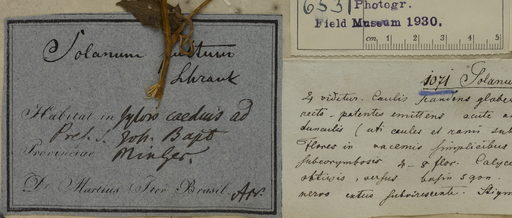 Solanum
Shrank
Habitat in sylvis caeduis ad
Pred. S. Joh. Bapt
Provinciae Minger.
Dr. Martius Iter Brasil.
6531 Photogr.
Field Museum 1930.
cm 1 2 3 4 5
1071 Solanu
videtur. Caulis glaber
recti-patentes emittens acute
dunculis (uti caules et rami sub
Flores in racemis simplicibus
subcorymbosis 4-8 flor. Calyce
obtusis, versus basin 5gon.
nervo extus subvirescente. Stigm